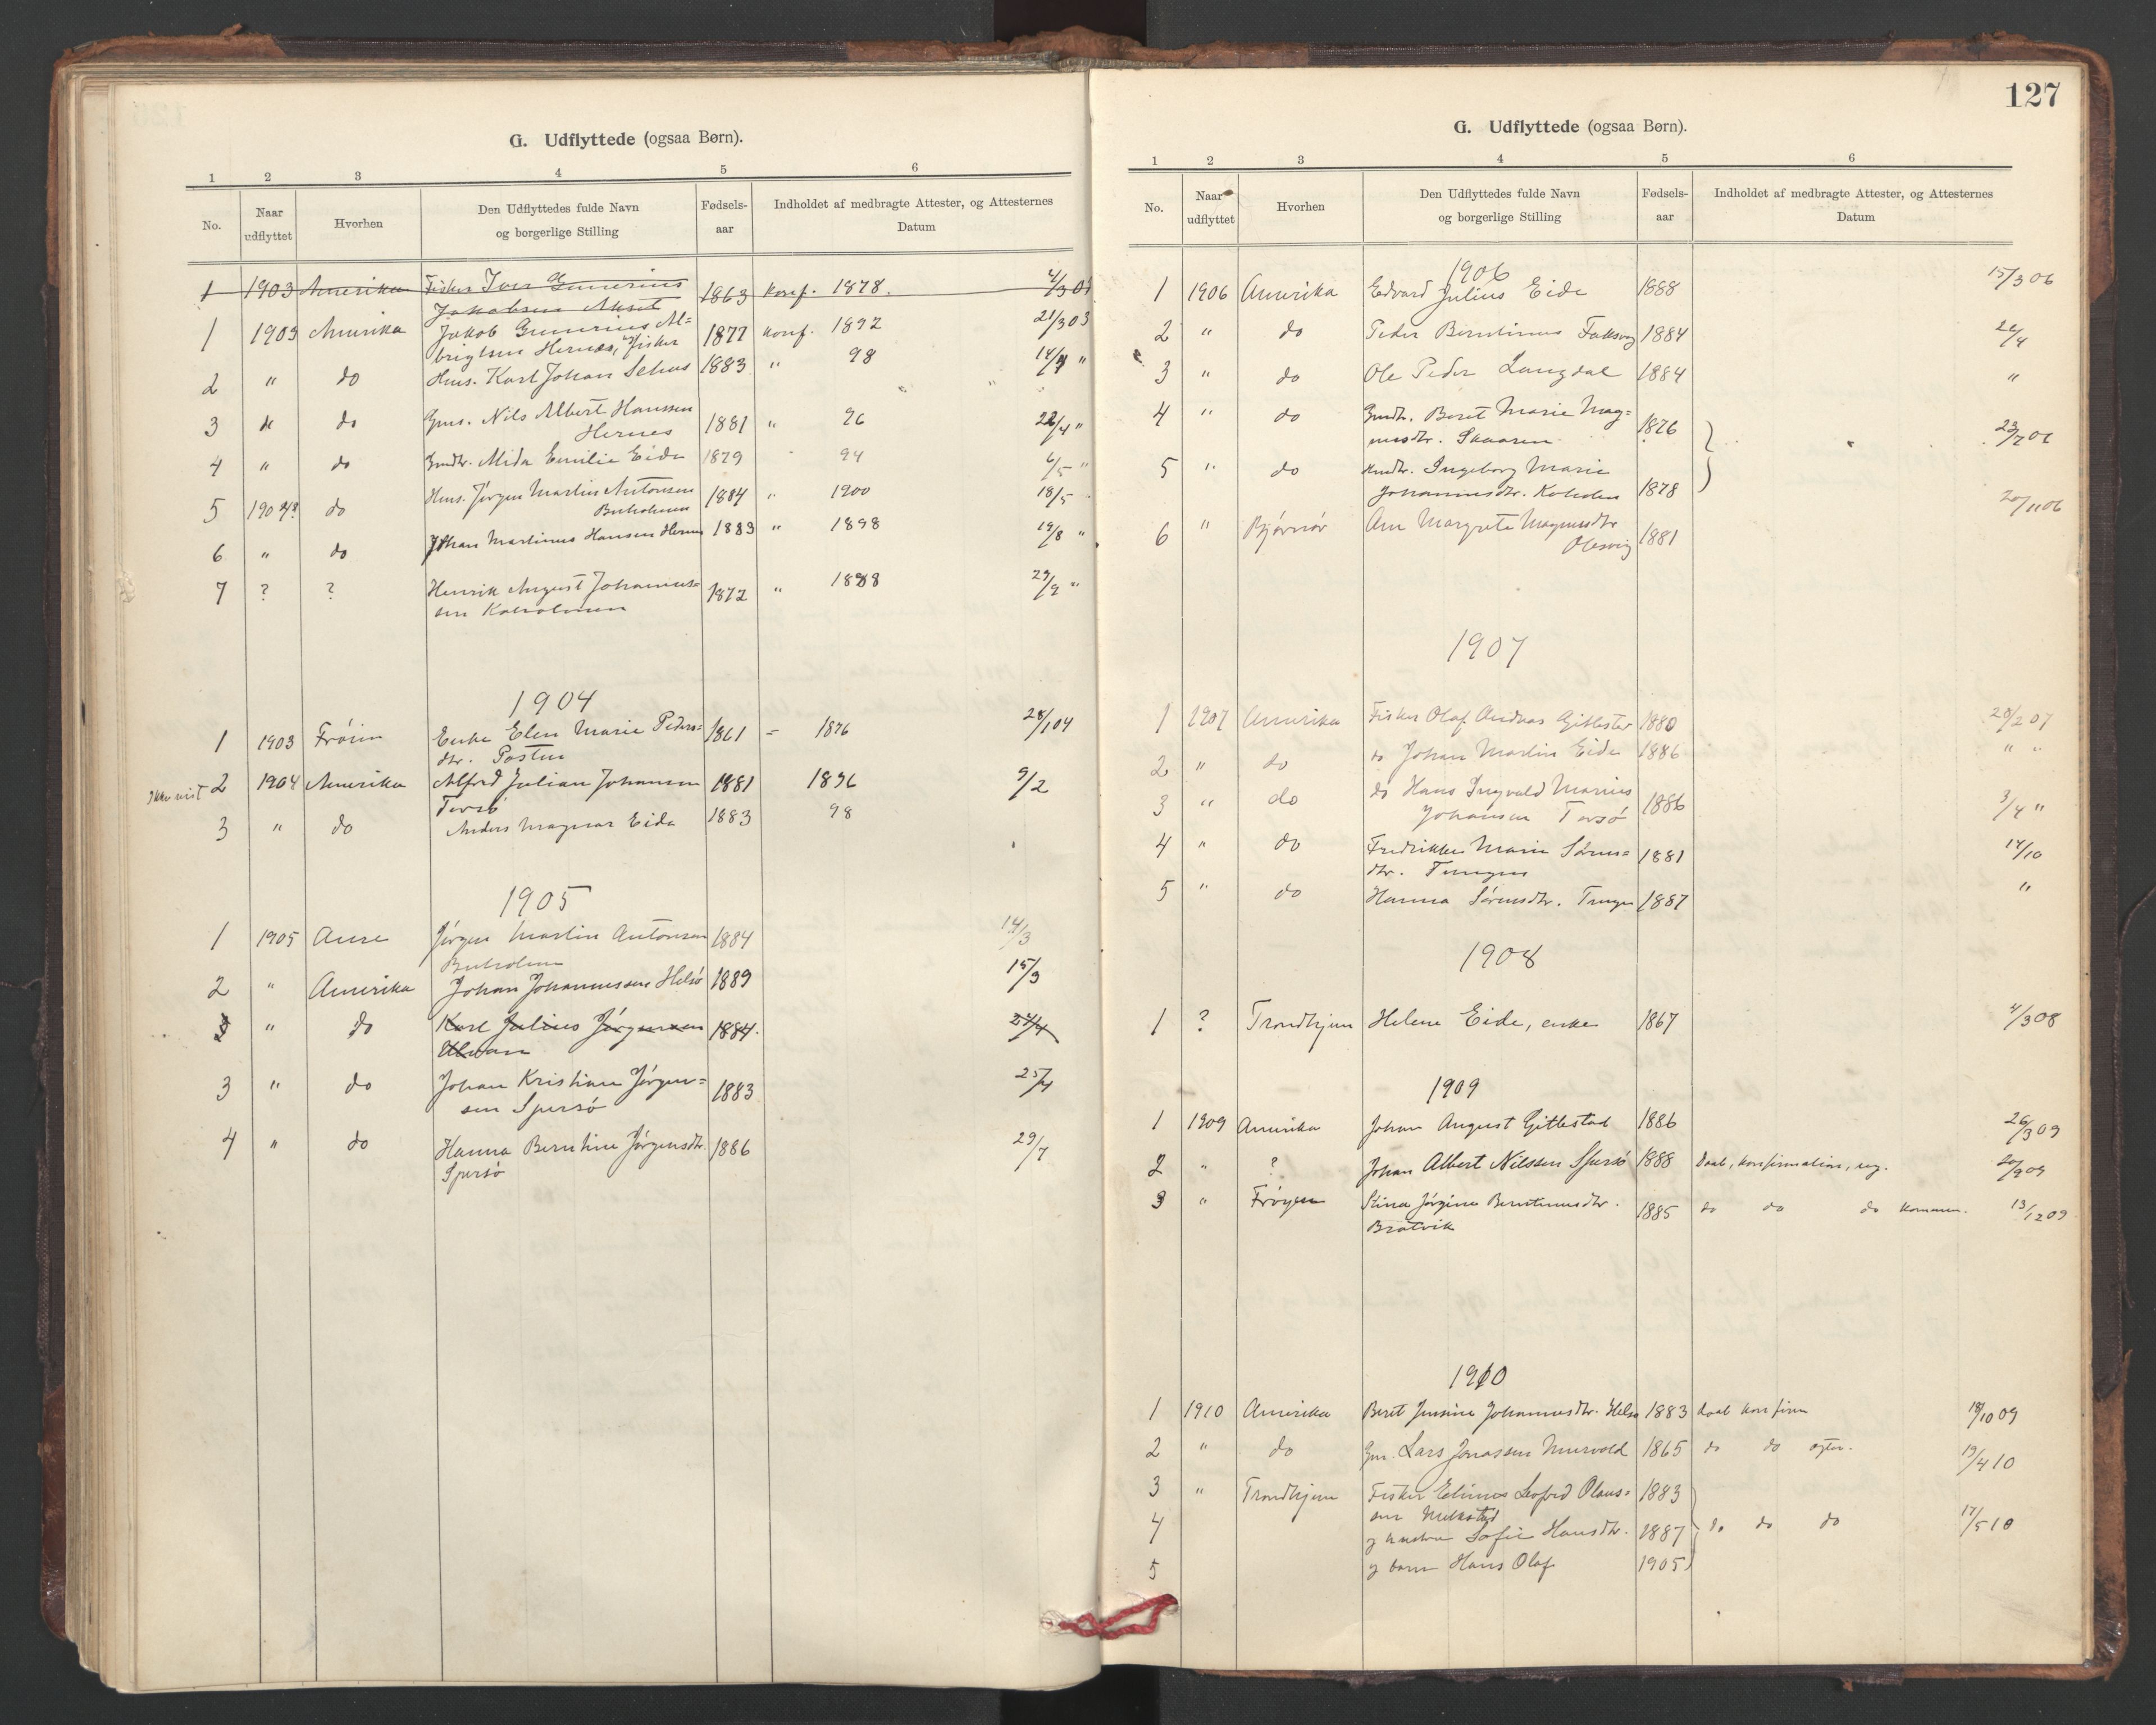 G. Udflyttede (ogsaa Børn).
1 2 3 4 5 6
No. Naar udflyttet Hvorhen Den Udflyttedes fulde Navn og borgerlige Stilling Fødsels-aar Indholdet af medbragte Attester, og Attesternes Datum
1 1903 Amerika Fisker Iver Gunerius 1863 konf. 1878. 4/3 03
Jakobsen
1 1903 Amerika Jakob Gunerius Al= 1877 konf. 1892 21/3 03
brigtsen Hernes, Fisker
2 " do Hms. Karl Johan 1883 " 98 "
3 do Gms. Nils Albert Hanssen 1881 " 96 "
Hernes
4 " do Gmdtr. Emilie Eide 1879 94 6/5 "
5 do Hms. Jörgen Martin Antonsen 1884 " 1900 18/5
6 " do Johan Martinus Hansen Hernes 1883 " 1898 19/8 "
7 ? ? Henrik August Johannes= 1872 " 1888 29/9 "
sen
1904
1 1903 Fröien Enke Elen Marie Peders= 1861 = 1876 28/1 04
dtr. Posten
2 1904 Amerika Alfred Julian Johansen 1881 1896 9/2
Torsö
3 " do Anders Magnar Eide 1883 98
1905
1 1905 Aure Jörgen Martin Antonsen 1884 14/3
2 " Amerika Johan Johannessen Helsö 1889 15/3
3 " do Karl Julius Jörgensen 1884. 24/4
3 " do Johan Kristian Jörgen= 1883 25/4
sen Spersö
4 " do Hanna Berntine Jörgensdtr. 1886 29/7
Spersö
127
G. Udflyttede (ogsaa Børn).
1 2 3 4 5 6
No. Naar udflyttet Hvorhen Den Udflyttedes fulde Navn og borgerlige Stilling Fødsels-aar Indholdet af medbragte Attester, og Attesternes Datum
1906
1 1906 Amerika Edvard Julius Eide 1888 15/3 06
2 " do Peder Berntinus 1884
3 " do Ole Peder Langdal 1884 "
4 " do Gmdtr. Beret Marie Mag= 1876
nusdtr.
5 " do Hmdtr. Ingeborg Marie
Johannesdtr. 1878
6 " Bjørnør Ane Margrete Magnusdtr 1881 20/11 06
Olesvig
1907
1 1907 Amerika Fisker Olaf Andreas 1880 28/2 07
2 " do do Johan Martin Eide 1886 " "
3 " do do Hans Ingvald Marius 1886 3/4 "
Johansen Torsö
4 " do Fredrikke Marie Sörens= 1881 14/10
dtr. Tungen
5 " do Hanna Sörensdtr. Tungen 1887 "
1908
1 ? Trondhjem Helene Eide, enke 1867 4/3 08
1909
1 1909 Amerika Johan August Gittestad 1886 26/3 09
2 " ? Johan Albert Nilssen Spersö 1888 Daab, konfirmation, ug. 20/9 09
3 " Fröyen Stina Jörgine Berntinusdtr. 1885 do do do kommun. 13/12 09
Bratvik
1910
1 1910 Amerika Beret Jensine Johannesdtr. Helsö 1883 daab konfirm 18/10 09
2 " do Gm. Lars Jonassen Murvold 1865 do do 19/4 10
3 " Trondhjem Fisker Elinus Olaus= 1883
sen
4 og hustru Sofie Hansdtr. 1887 do do do 17/5 10
5 og barn Hans Olaf 1905